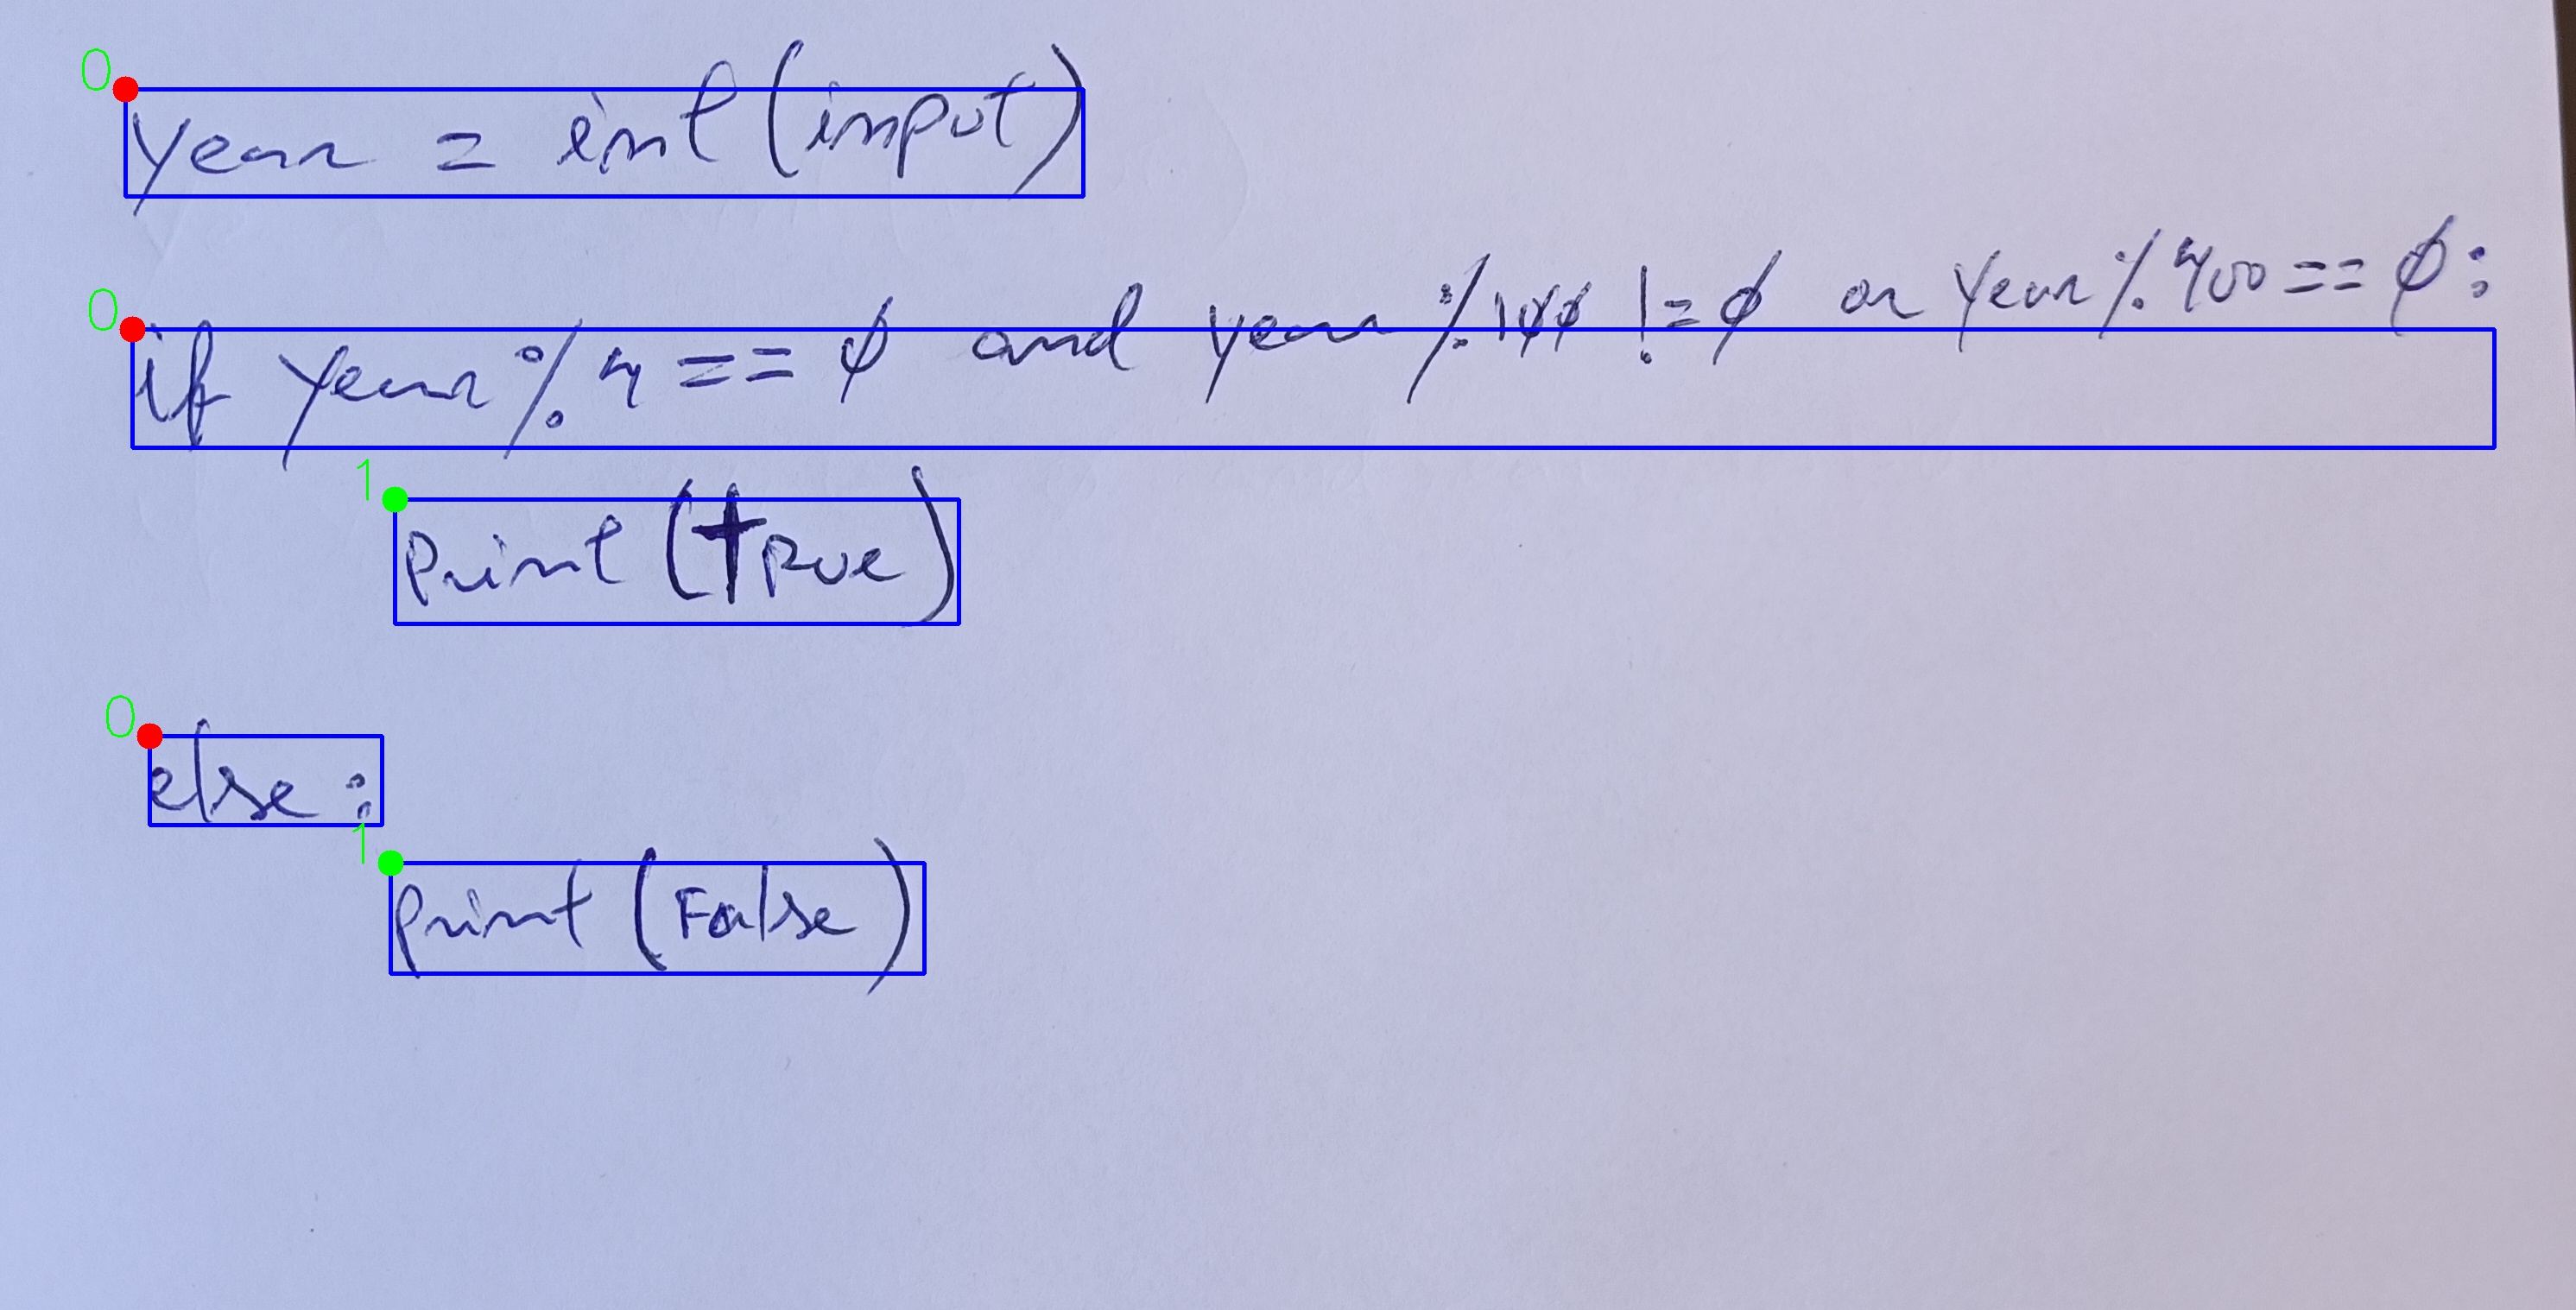 0
year = int (input)
0
if year % 4 == 0 and year % 100 != 0 or year % 400 == 0:
1
print (True)
0
else :
1
print (False)